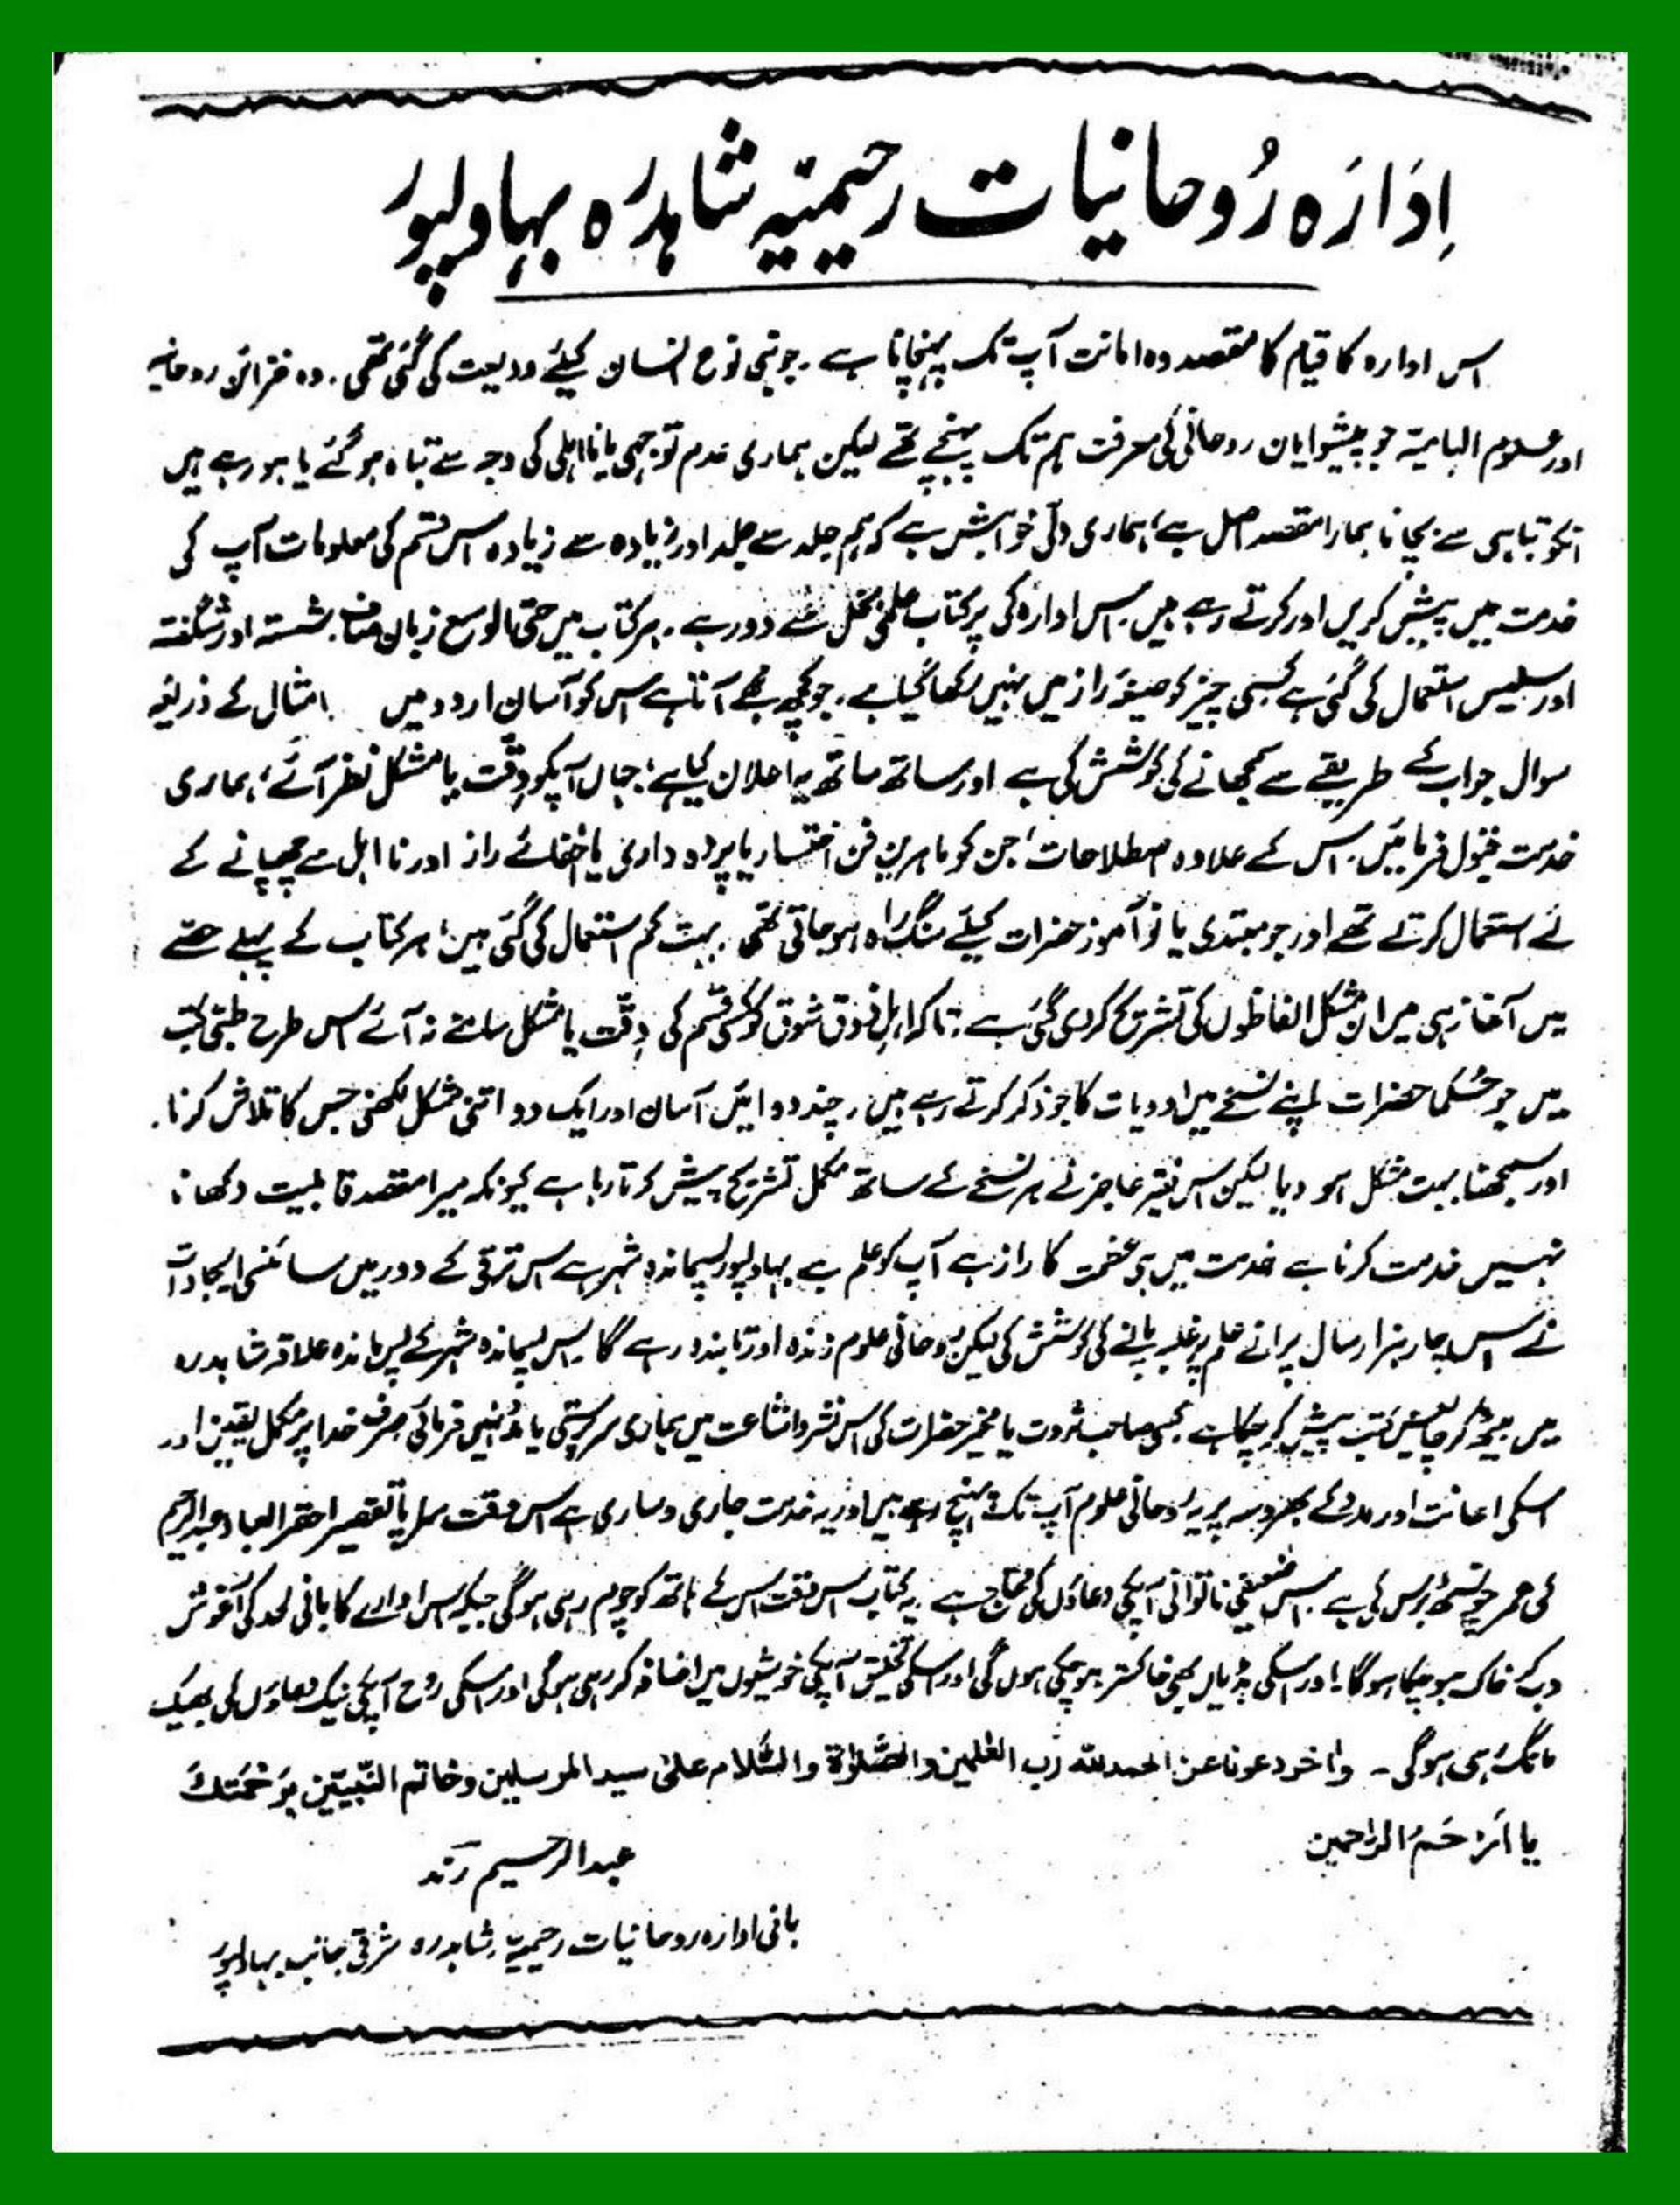 اِدَارَہ رُوحانیات رحیمیّہ شاہدرہ بہاولپور
اس ادارہ کا قیام کا مقصد وہ امانت آپ تک پہنچانا ہے ۔ جو بنی نوع انسان کیلئے ودیعت کی گئی تھی ۔ وہ خزائن روحانیہ
اور علوم الہامیّہ جو پیشوایان روحانی کی معرفت ہم تک پہنچے تھے لیکن ہماری عدم توجہی یا نااہلی کی وجہ سے تباہ ہو گئے یا ہو رہے ہیں
انکو تباہی سے بچانا ہمارا مقصد اصل ہے، ہماری دلی خواہش ہے کہ ہم جلد سے جلد اور زیادہ سے زیادہ اس قسم کی معلومات آپ کی
خدمت میں پیش کریں اور کرتے رہے ہیں ۔ اس ادارہ کی ہر کتاب علمی بخل سے دور ہے ۔ ہر کتاب میں حتی الوسع زبان صاف شستہ اور شگفتہ
اور سلیس استعمال کی گئی ہے کسی چیز کو صیغۂ راز میں نہیں رکھا گیا ہے ۔ جو کچھ مجھے آتا ہے اس کو آسان اردو میں امثال کے ذریعہ
سوال جواب کے طریقے سے سمجھانے کی کوشش کی ہے اور ساتھ ساتھ یہ اعلان کیا ہے، جہاں آپکو دِقّت یا مشکل نظر آئے، ہماری
خدمت قبول فرمائیں ۔ اس کے علاوہ اصطلاحات، جن کو ماہرین فن اختصار یا پردہ داری یا اخفائے راز اور نا اہل سے چھپانے کے
لئے استعمال کرتے تھے اور جو مبتدی یا نوآموز حضرات کیلئے سنگ راہ ہو جاتی تھی ۔ بہت کم استعمال کی گئی ہیں، ہر کتاب کے پہلے حصے
میں آغاز ہی میں ان مشکل الفاظوں کی تشریح کر دی گئی ہے، تاکہ اہل ذوق شوق کو کسی قسم کی دِقّت یا مشکل سامنے نہ آئے اس طرح طبّی کتب
میں جو حُکما حضرات اپنے نسخے میں ادویات کا جو ذکر کرتے رہے ہیں ، چند دوائیں آسان اور ایک دو اتنی مشکل لکھنی جس کا تلاش کرنا ۔
اور سمجھنا بہت مشکل ہو دیا لیکن اس فقیر عاجز نے ہر نسخے کے ساتھ مکمل تشریح پیش کرتا رہا ہے کیونکہ میرا مقصد قابلیت دکھانا
نہیں خدمت کرنا ہے خدمت میں ہی عظمت کا راز ہے آپ کو علم ہے بہاولپور پسماندہ شہر ہے اس ترقی کے دور میں سائنسی ایجادات
نے اس چار ہزار سال پرانے علم پر غلبہ پانے کی کوشش کی لیکن روحانی علوم زندہ اور تابندہ رہے گا ۔ اس پسماندہ شہر کے پس ماندہ علاقہ شاہدرہ
میں بیٹھ کر چالیس کتب پیش کر چکا ہے کسی صاحب ثروت یا مخیر حضرات کی اس نشر و اشاعت میں ہماری سرپرستی یا مدد نہیں فرمائی صرف خدا پر مکمل یقین اور
اسکی اعانت اور مدد کے بھروسہ پر یہ روحانی علوم آپ تک پہنچ رہے ہیں اور یہ خدمت جاری و ساری ہے اس وقت سراپا تقصیر احقر العباد عبدالرحیم
کی عمر چونسٹھ برس کی ہے ۔ اس ضعیفی ناتوانی آپکی دعاؤں کی محتاج ہے ۔ یہ کتاب اس وقت اس کے ہاتھ کو چوم رہی ہوگی جبکہ اس ادارے کا بانی لحد کی آغوش
دب کے خاک ہو چکا ہوگا، اور اسکی ہڈیاں بھی خاکستر ہو چکی ہوں گی اور اسکی تخلیق آپکی خوشیوں میں اضافہ کر رہی ہوگی اور اسکی روح آپکی نیک دعاؤں کی بھیک
مانگ رہی ہوگی ۔ واٰخر دعونا عن الحمدللہ رَب العٰلمین والصَّلوٰۃ والسَّلام علیٰ سید المرسلین وخاتم النّبیّین بِرَحمَتِكَ
یا اَرْحَمَ الرّاحمین
عبدالرحیم رند
بانی ادارہ روحانیات رحیمیّہ شاہدرہ شرقی جانب بہاولپور